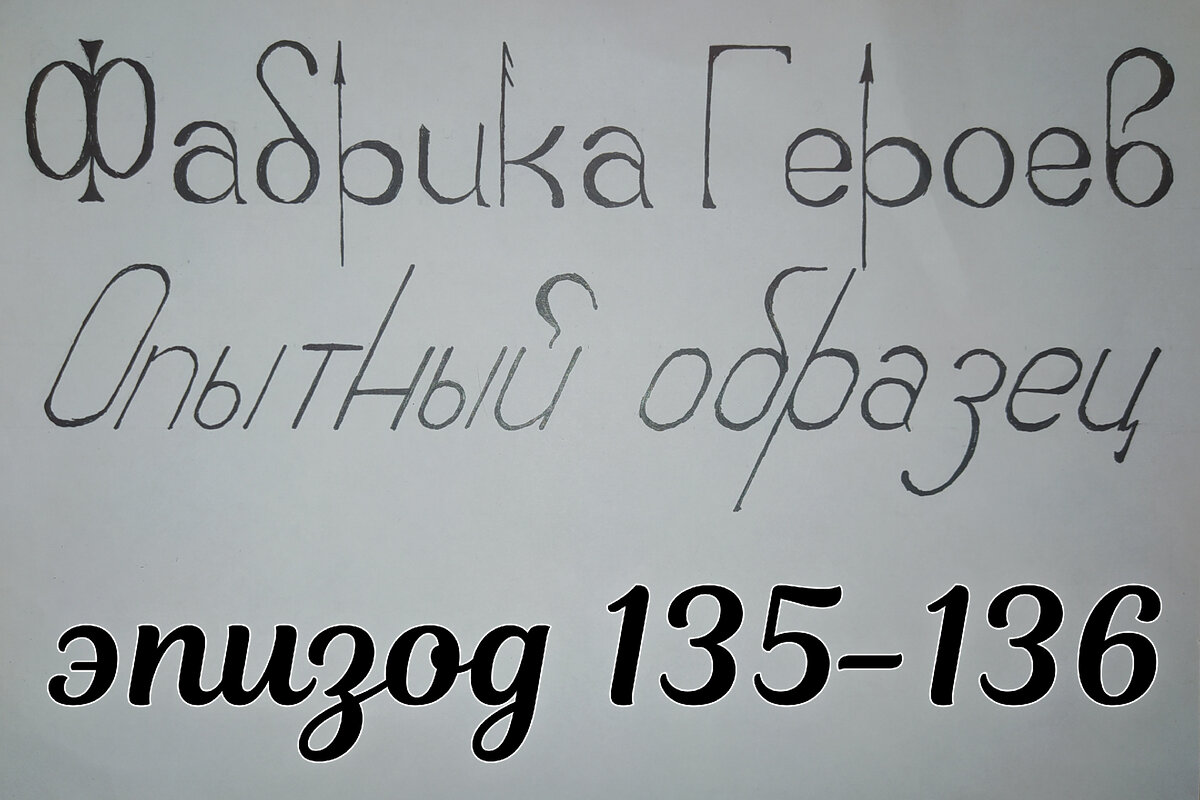 Фабрика Героев
Опытный образец
эпизод 135-136